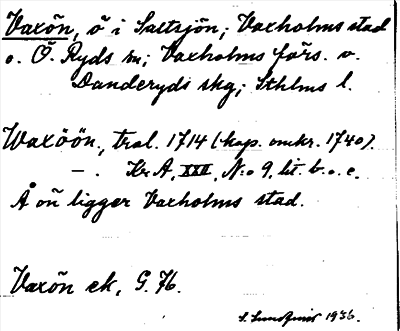 Vaxön, ö i Saltsjön; Vaxholms stad
o. Ö. Ryds sn; Vaxholms förs. o.
Danderyds skg; Sthlms l.
Waxöön., tral. 1714 (kop. omkr. 1740).
— . Kr. A. XXII, N:o 9, lit. b. o. c.
Å ön ligger Vaxholms stad.
Vaxön ek, G. 76.
S. Lundqvist 1936.